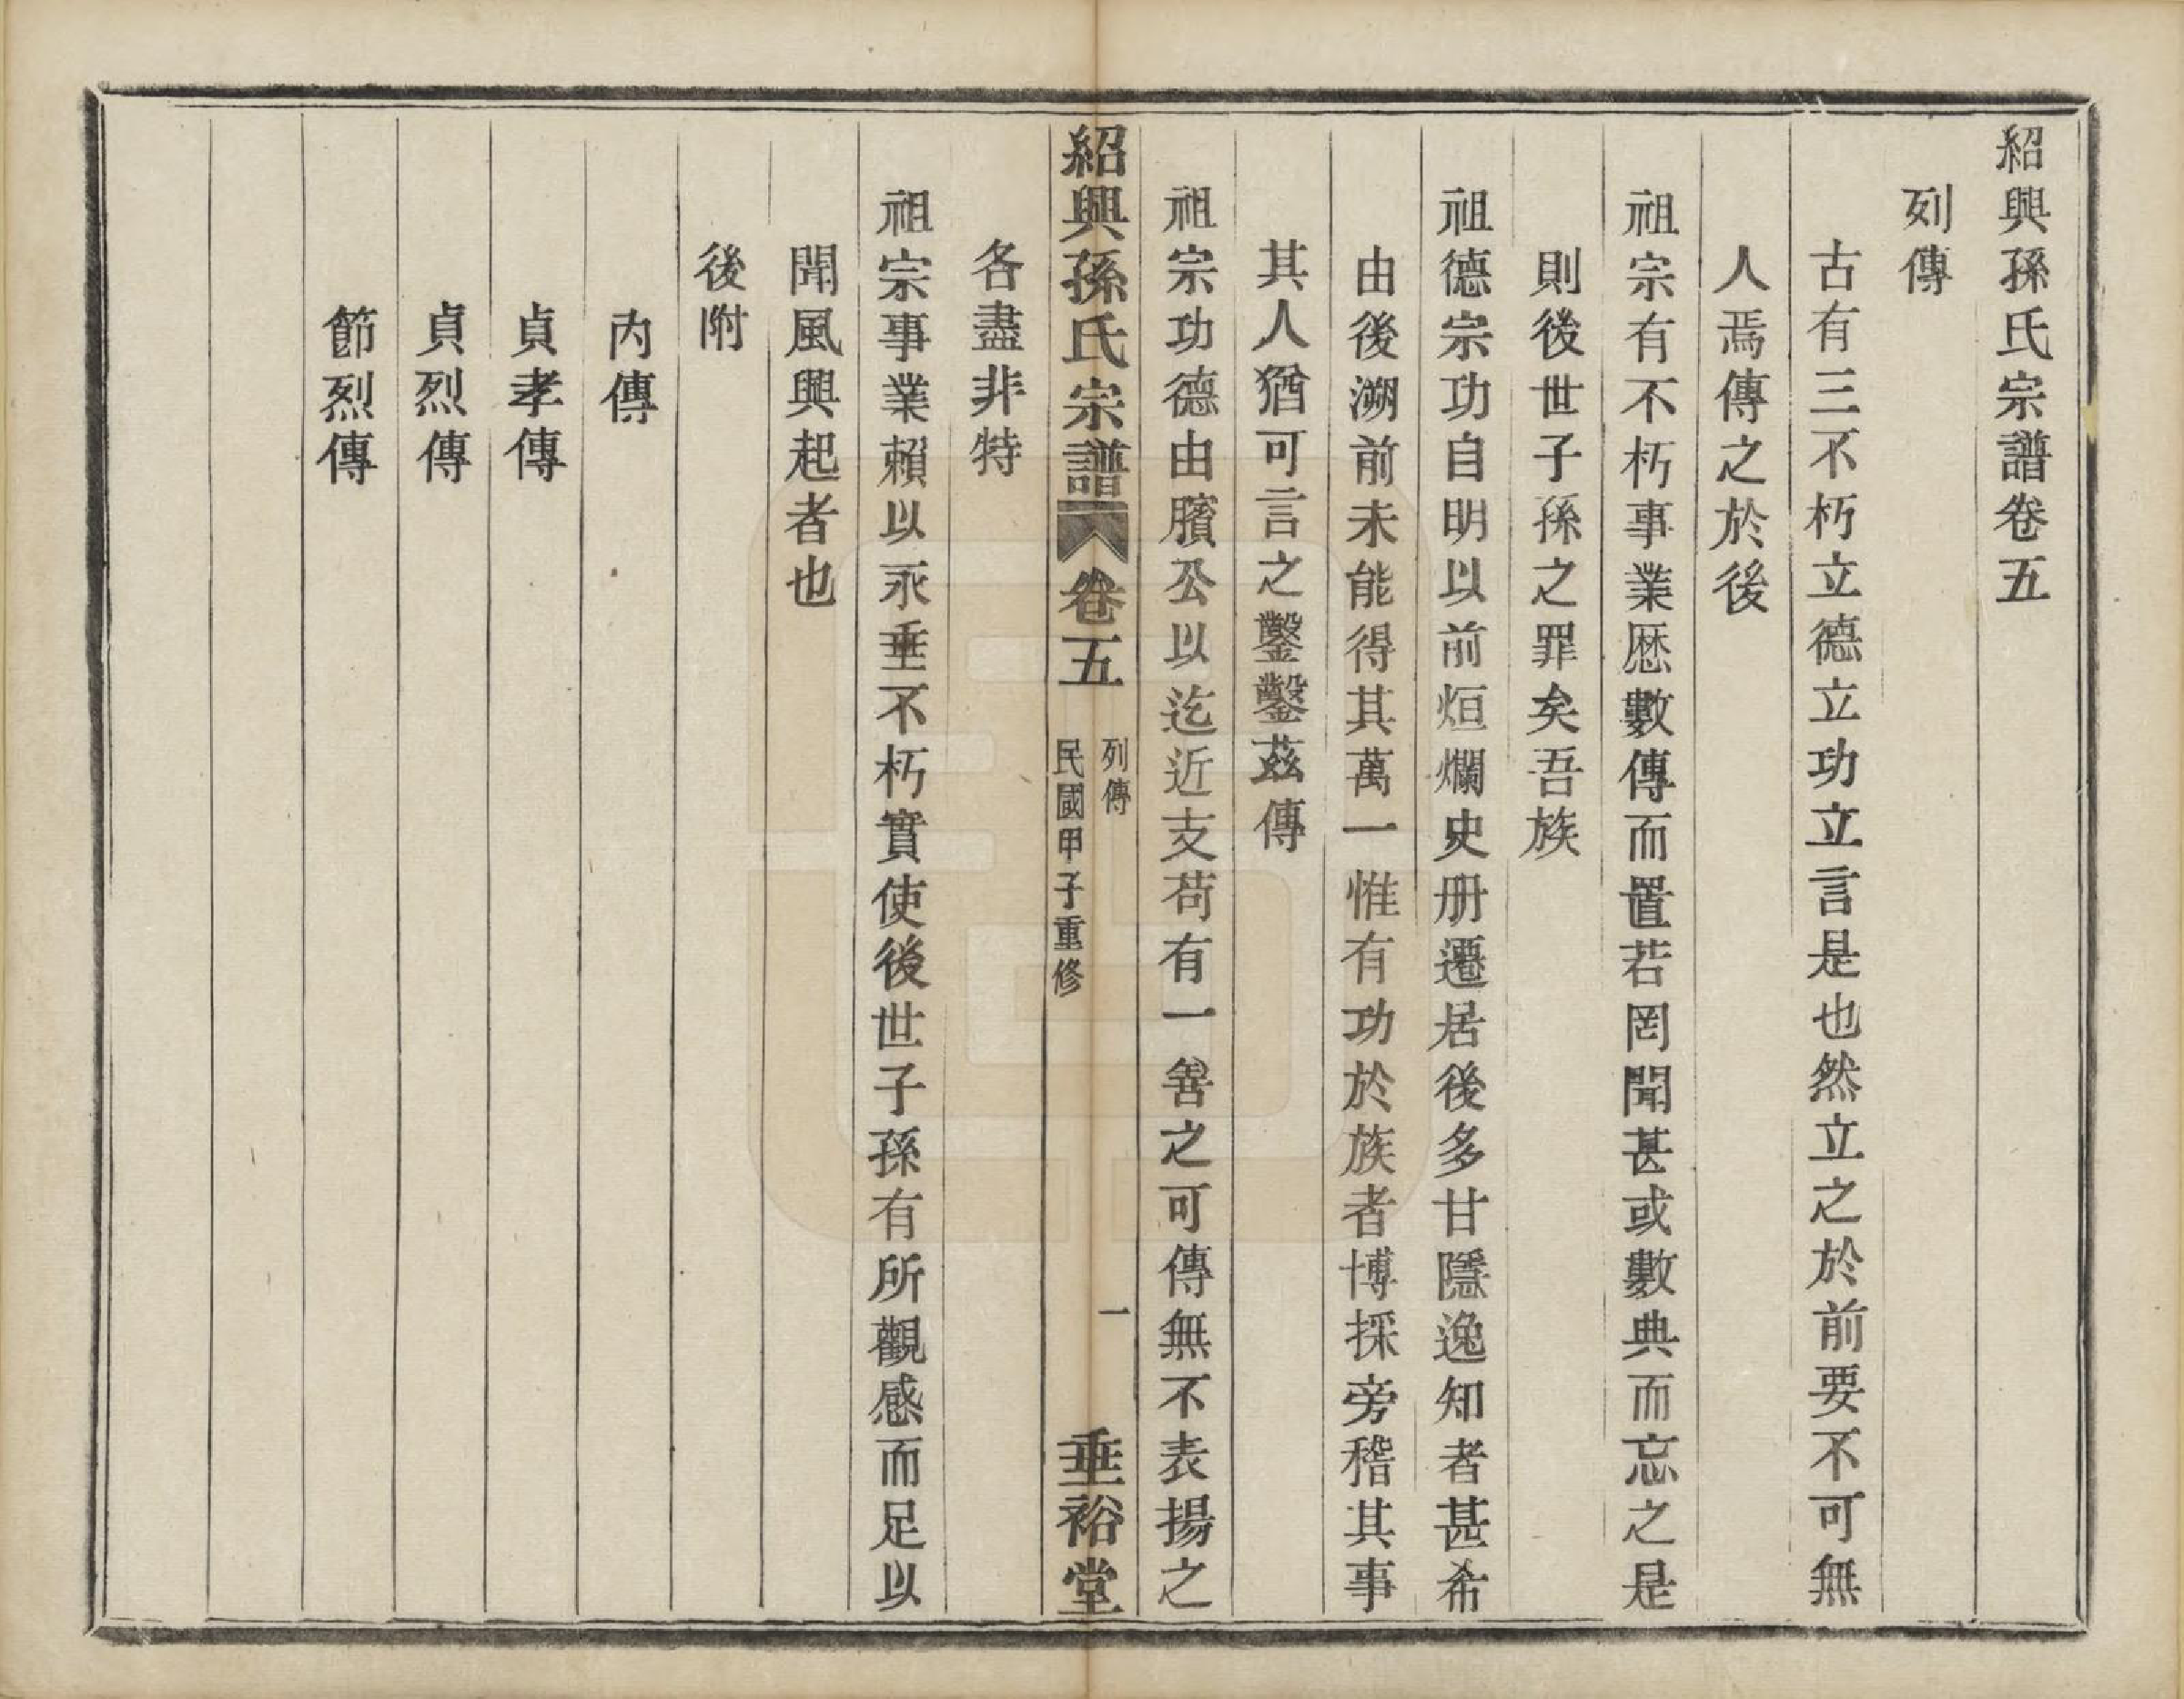 紹興孫氏宗譜卷五
列傳
古有三不朽立德立功立言是也然立之於前要不可無
人焉傳之於後
祖宗有不朽事業歷數傳而置若罔聞甚或數典而忘之是
則後世子孫之罪矣吾族
祖德宗功自明以前烜爛史册遷居後多甘隱逸知者甚希
由後溯前未能得其萬一惟有功於族者博採旁稽其事
其人猶可言之鑿鑿茲傳
祖宗功德由臏公以迄近支苟有一善之可傳無不表揚之
紹興孫氏宗譜
卷五
列傳
民國甲子重修
一
垂裕堂
各盡非特
祖宗事業賴以永垂不朽實使後世子孫有所觀感而足以
聞風興起者也
後附
內傳
貞孝傳
貞烈傳
節烈傳